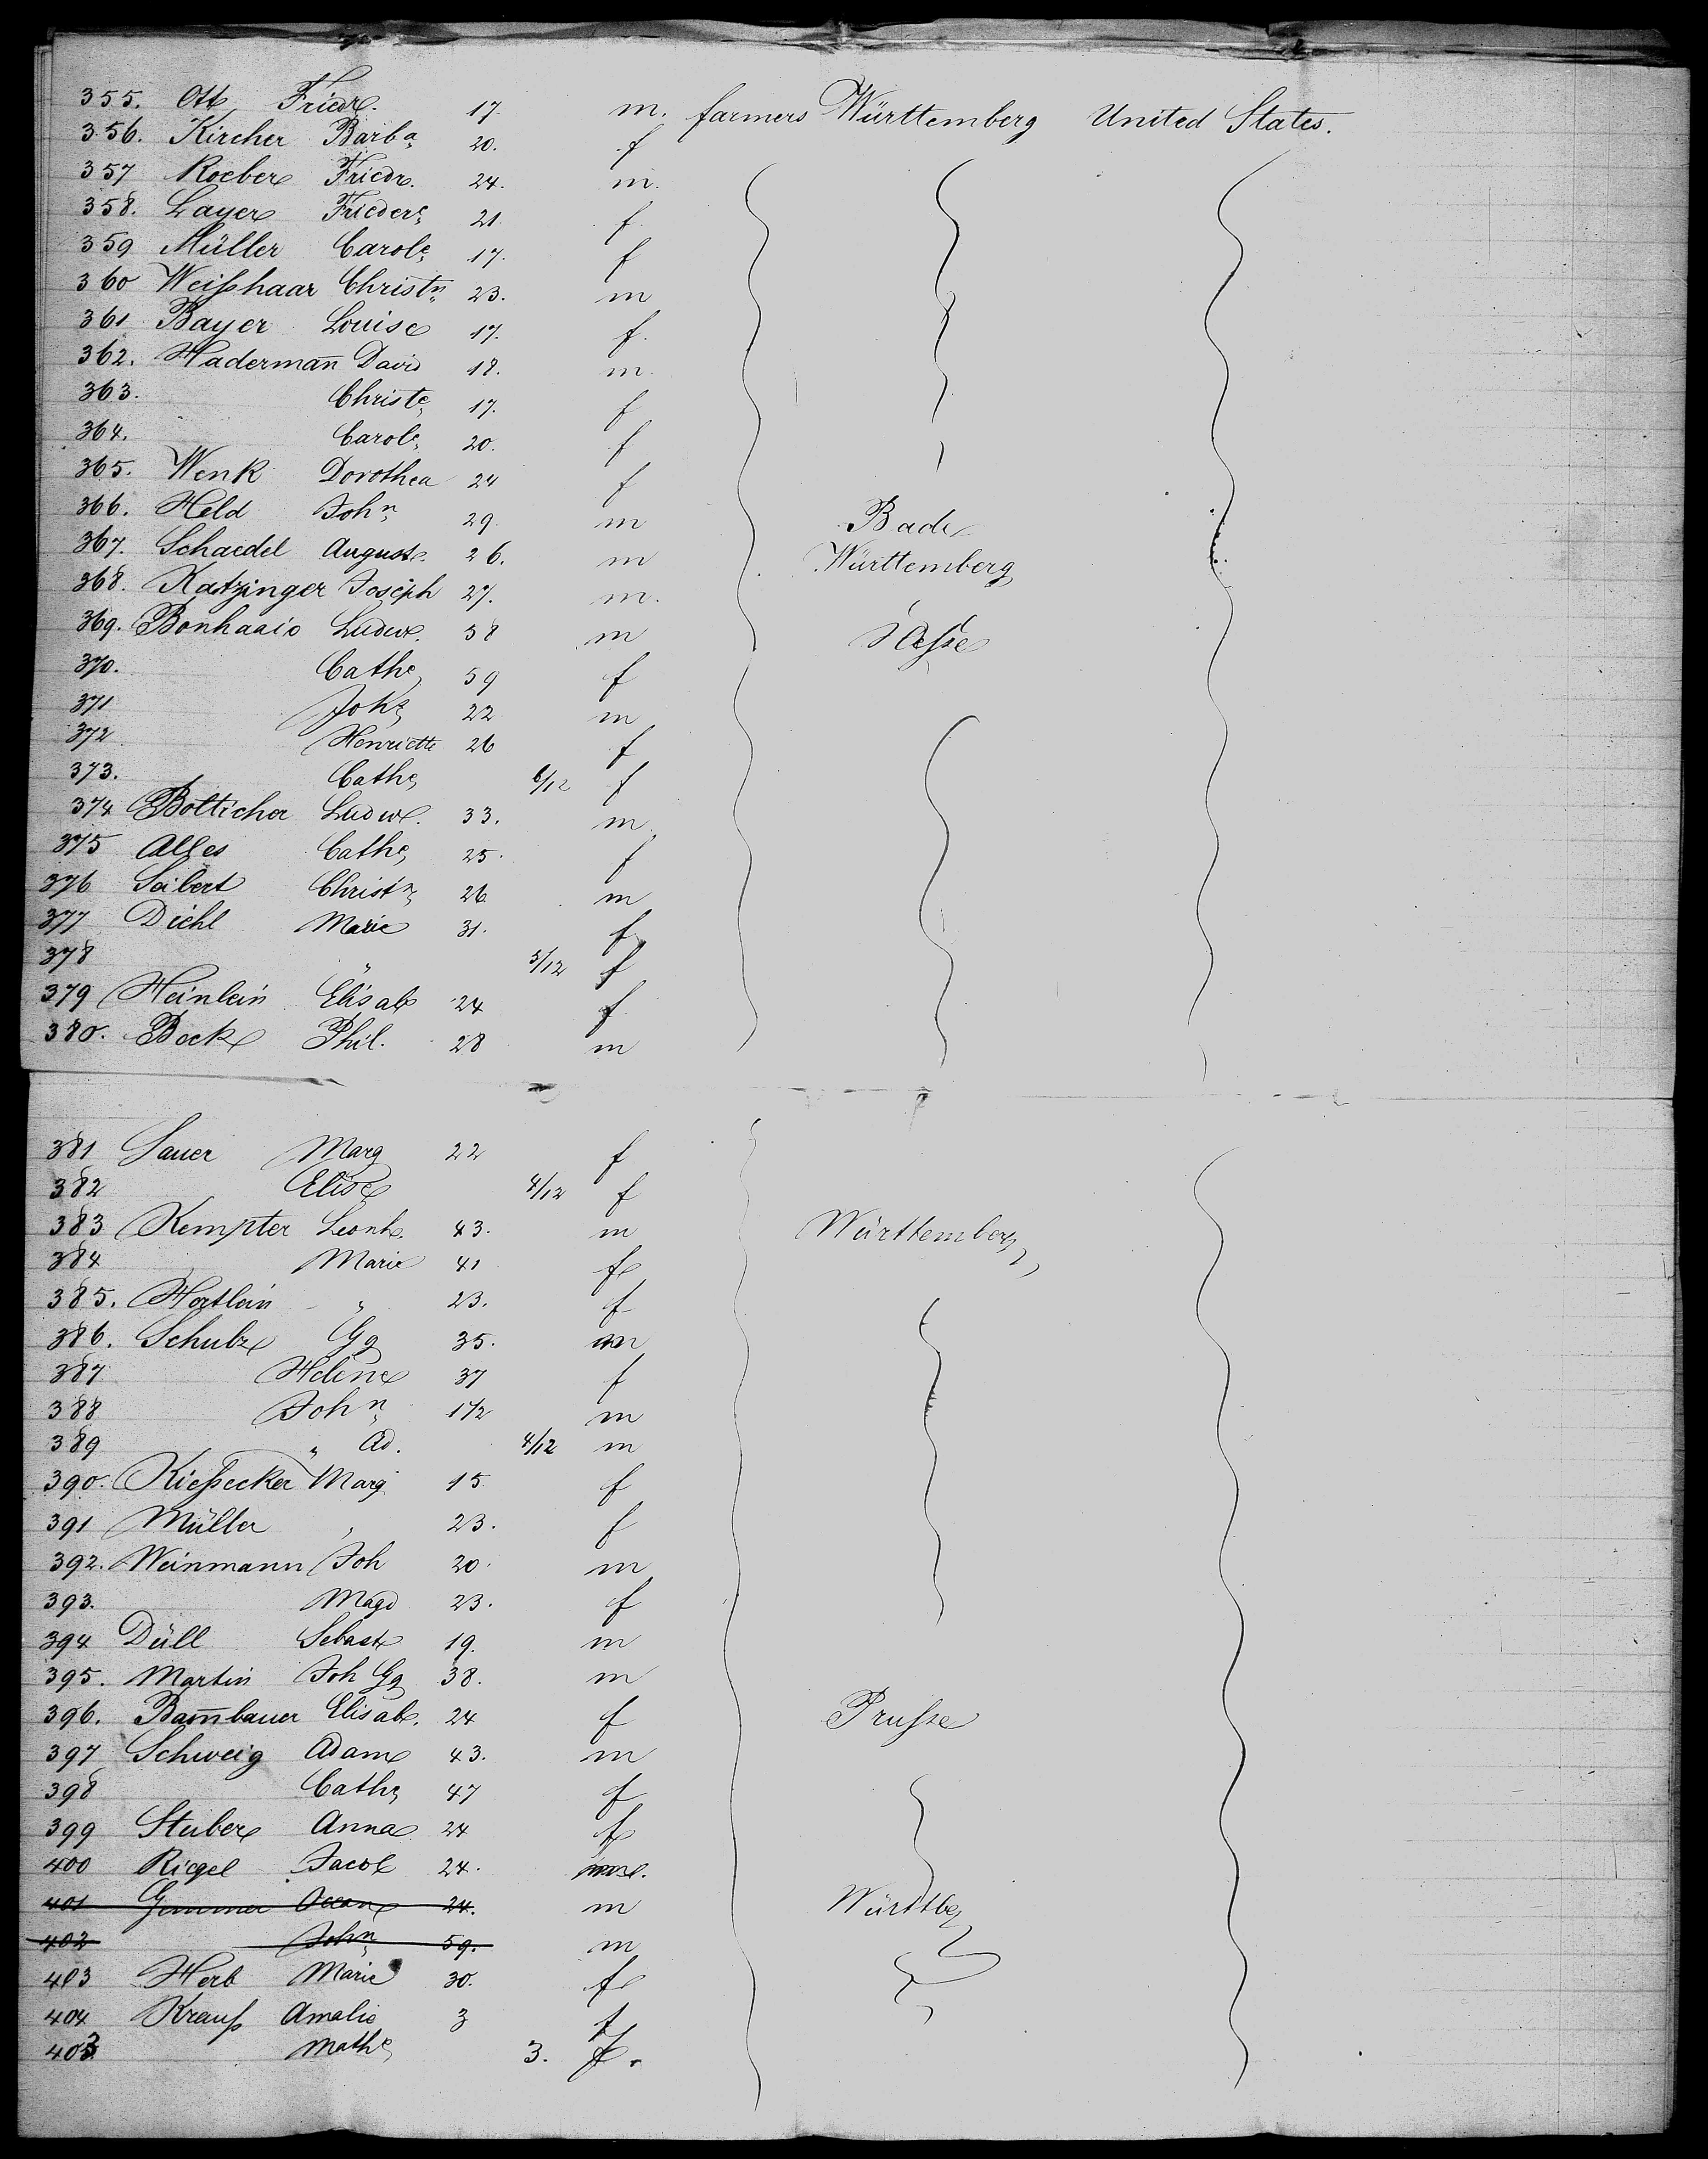 355. Ott Friedr. 17. m. farmers Württemberg United States.
356. Kircher Barba 20. f
357 Roeber Friedr. 24. m.
358. Layer Friedere 21. f
359 Müller Carole 17. f
360 Weißhaar Christn 23. m
361 Bayer Louise 17. f.
362. Haderman̄ David 18. m.
363. Christe 17. f
364. Carole 20. f
365. Wenk Dorothea 24 f
366. Held John 29. m Bade
367. Schaedel August 26. m Württemberg
368. Katzinger Joseph 27. m.
369. Ludw. 58 m Hesse
370. Cathe 59 f
371 22 m
372 Henriette 26 f
373. Cathe 6/12 f
374 Botticher Ludw. 33. m
375 Alles Cathe 25. f
376 Seibert Christn 26 m
377 Diehl Marie 31. f
378 " 5/12 f
379 Heinlein Elisab 24 f
380. Bock Phil. 28 m
381 Sauer Marg 22 f
382 Elise 4/12 f
383 Kempter Leonh. 43. m Württemberg
384 Marie 41 f
385. " 23. f
386. Schulz Gg 35. m
387 Helene 37 f
388 John 1 1/2 m
389 " Ad. 4/12 m
390. Kießecker Marg 15 f
391 Müller " 23. f
392. Weinmann Joh 20. m
393. Magd 23. f
394 Düll Sebast 19. m
395. Martin Joh Gg 38. m
396. Bam̄bauer Elisab. 24 f Prusse
397 Schweig Adam 43. m
398 Cathe 47 f
399 Stuber Anna 24 f
400 Riegel Jacob 24. m
401 24. m Württbg
402 John 59. m
403 Herb Marie 30. f
404 Krauß Amalie 3 f
403 Mathe 3. f.